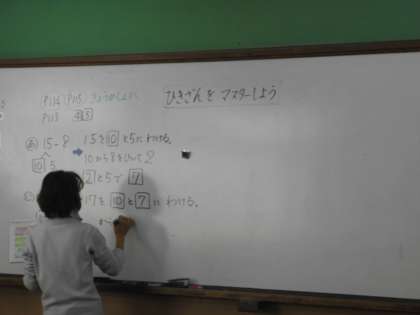 ひきざんを マスターしよう
P114 P115
P113 ④⑤
あ 15-8
10 5
15を10と5にわける。
10から8をひいて2
2と5で7
17を10と7にわける。